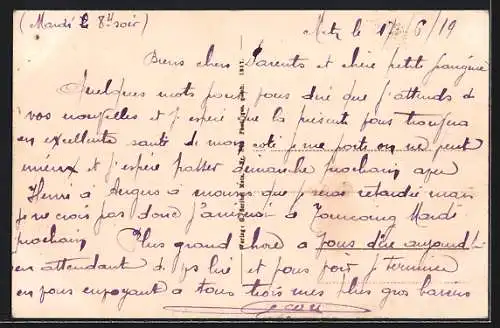 (Mardi le 8H soir)
Metz le 17/6/19
Biens chers Parents et chère petite frangine
Quelques mots pour vous dire que j'attends de
vos nouvelles et j'espère que la présente vous trouvera
en excellente santé de mon coté je me porte on ne peut
mieux et j'espère passer dimanche prochain avec
Henri à moins que je sois retardé mais
je ne crois pas donc j'arriverai à Mardi
prochain Plus grand chose a vous dire aujourd'hui
en attendant de vous lire et vous voir je termine
en vous envoyant a tous trois mes plus gros baisers